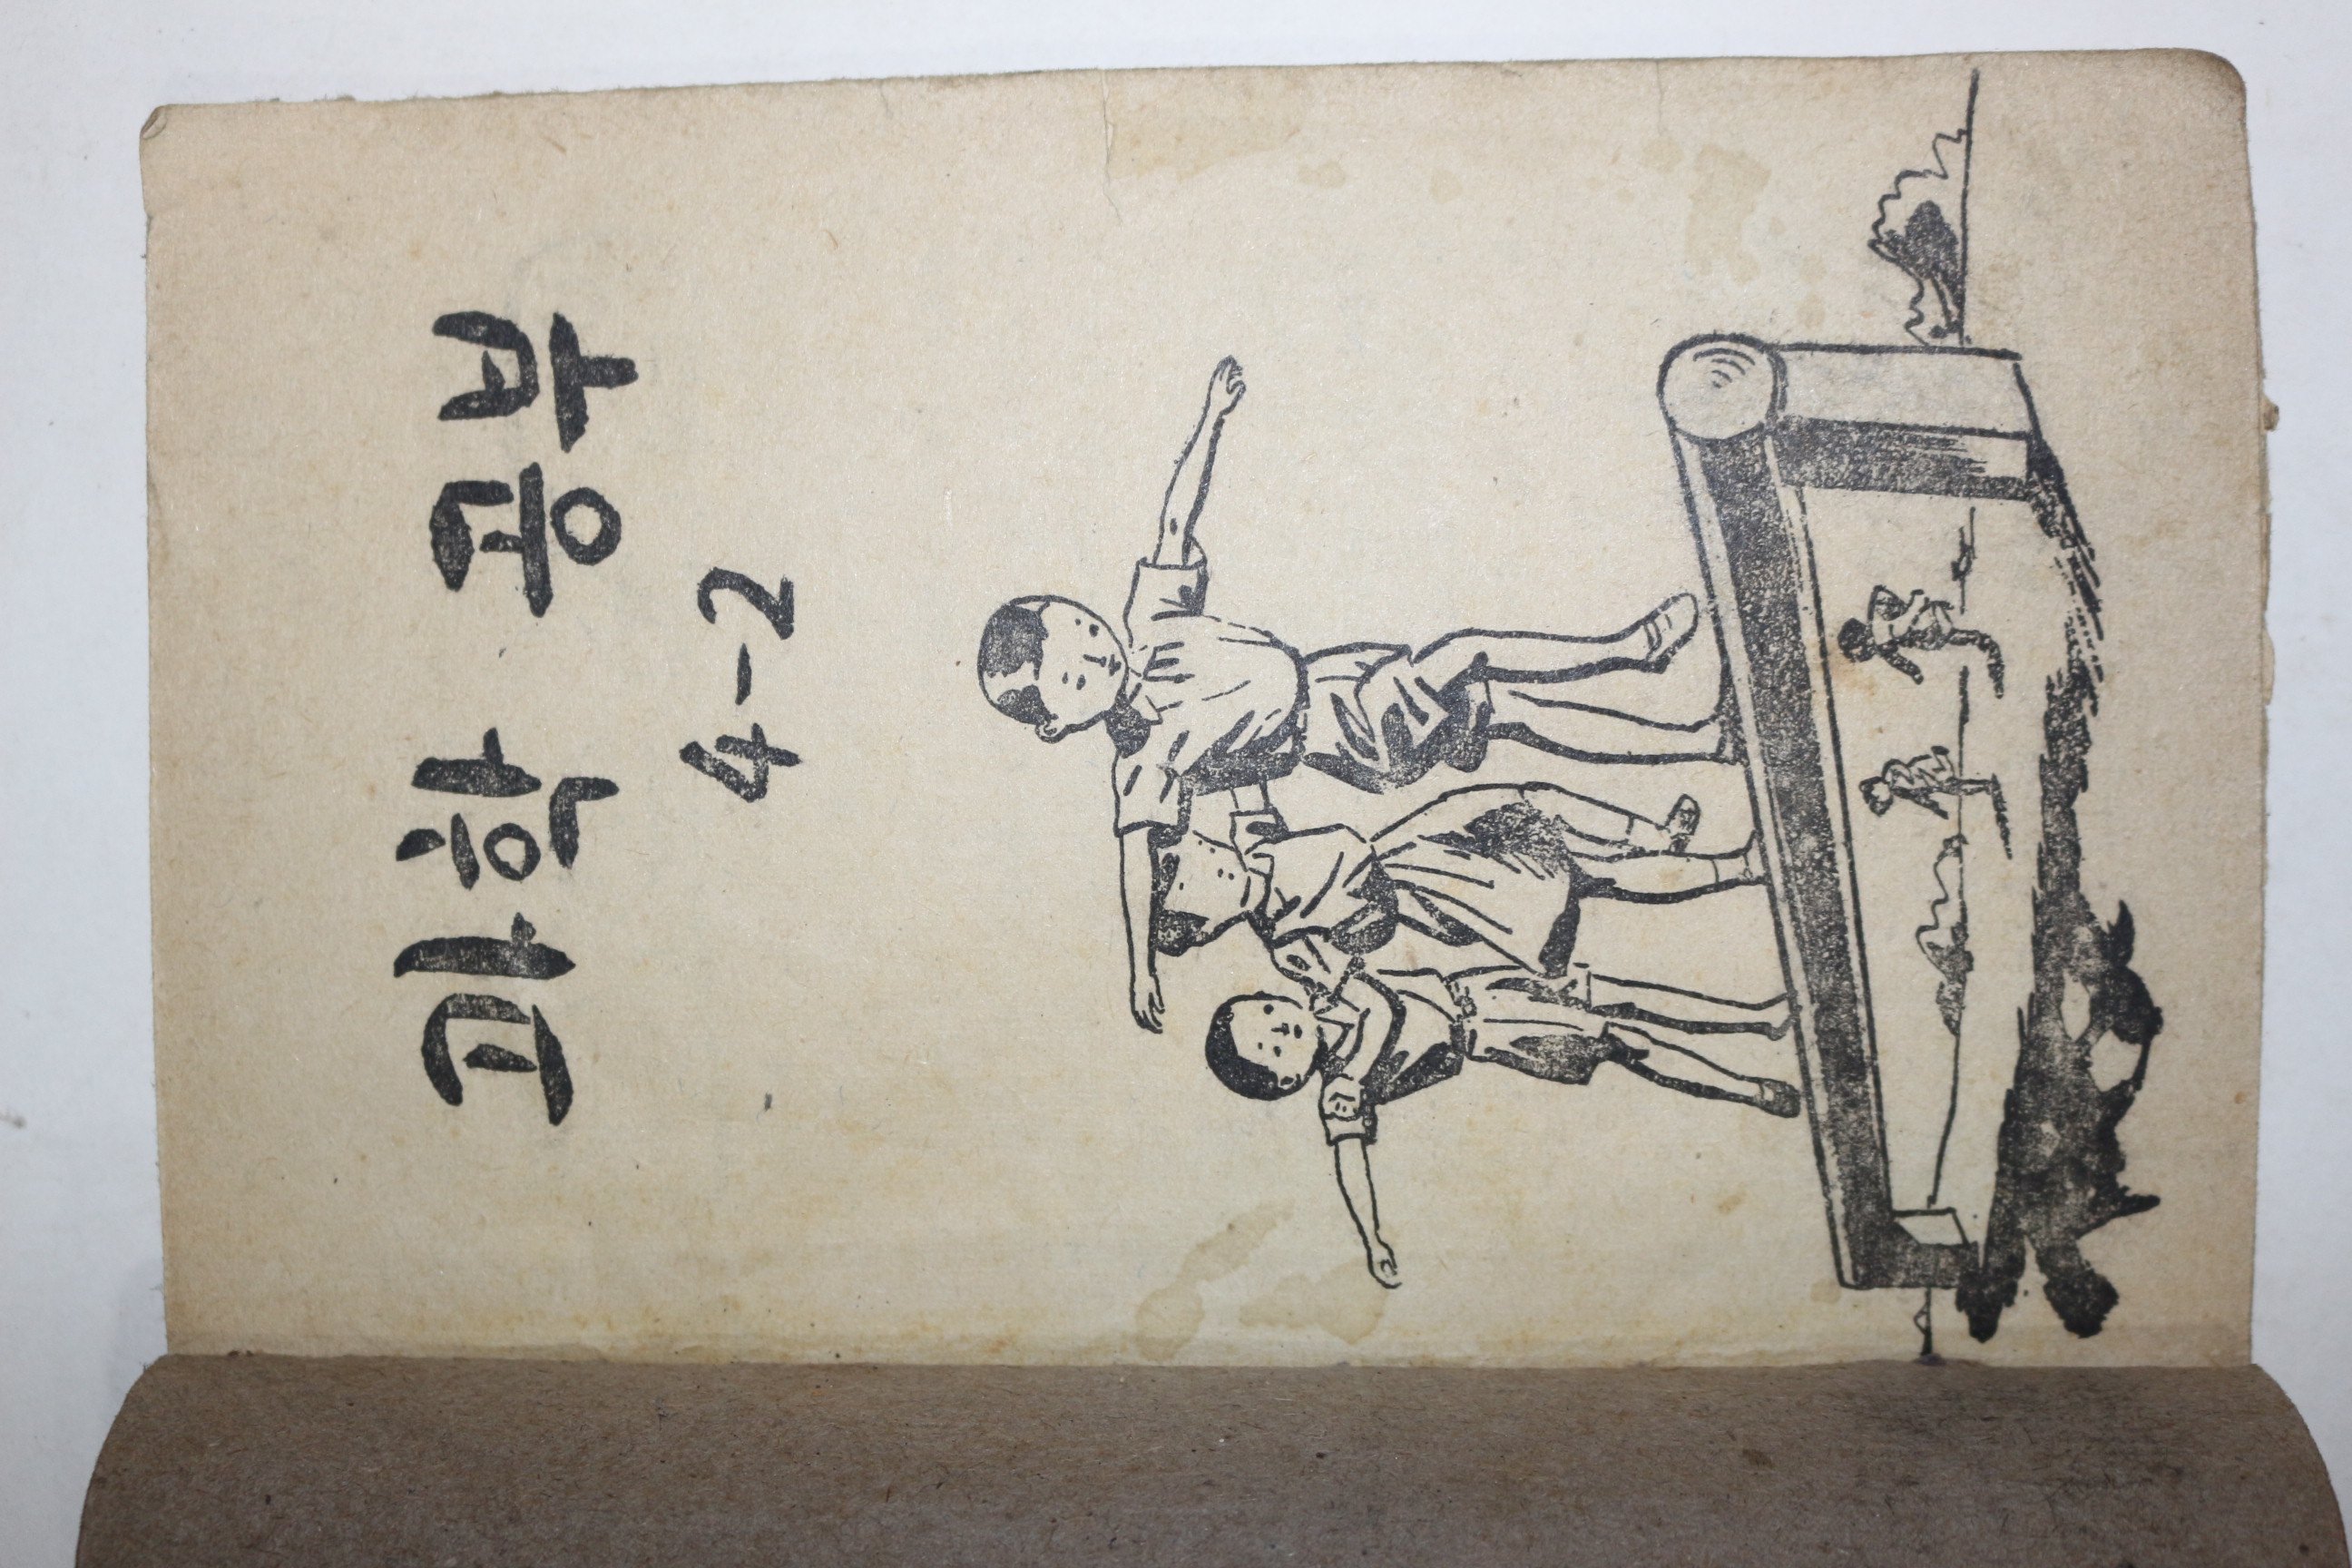 과학 공부
4-2